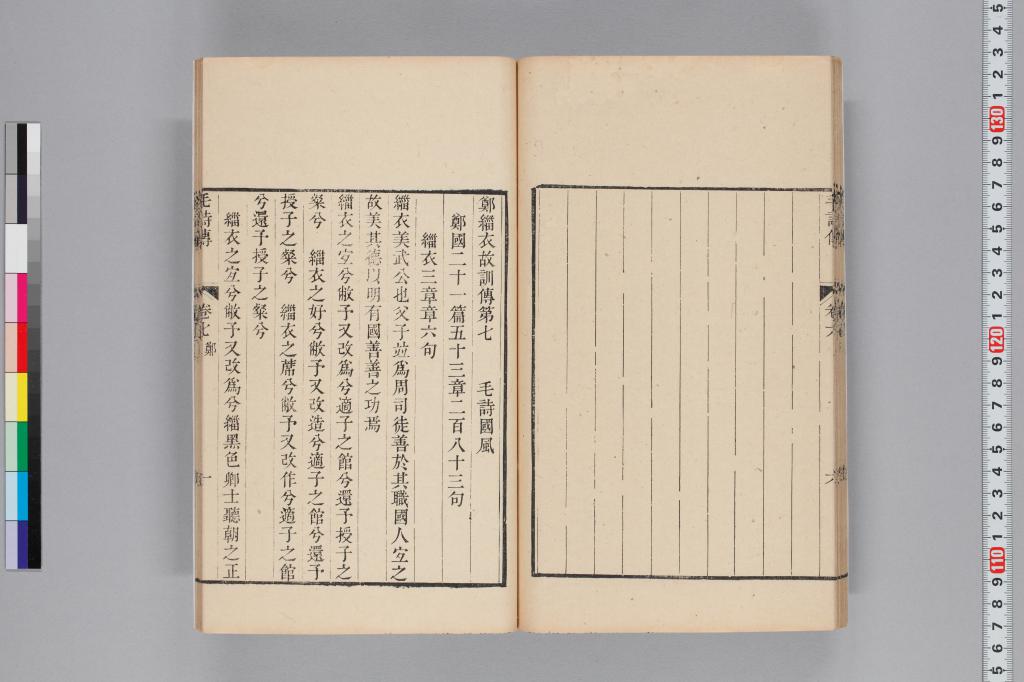 鄭緇衣故訓傳第七　毛詩國風
鄭國二十一篇五十三章二百八十三句
緇衣三章章六句
緇衣美武公也父子竝爲周司徒善於其職國人宜之
故美其德以明有國善善之功焉
緇衣之宜兮敝予又改爲兮適子之館兮還予授子之
粲兮　緇衣之好兮敝予又改造兮適子之館兮還予
授子之粲兮　緇衣之蓆兮敝予又改作兮適子之館
兮還予授子之粲兮
緇衣之宜兮敝予又改爲兮緇黑色卿士聽朝之正
毛詩傳
卷七
鄭
一